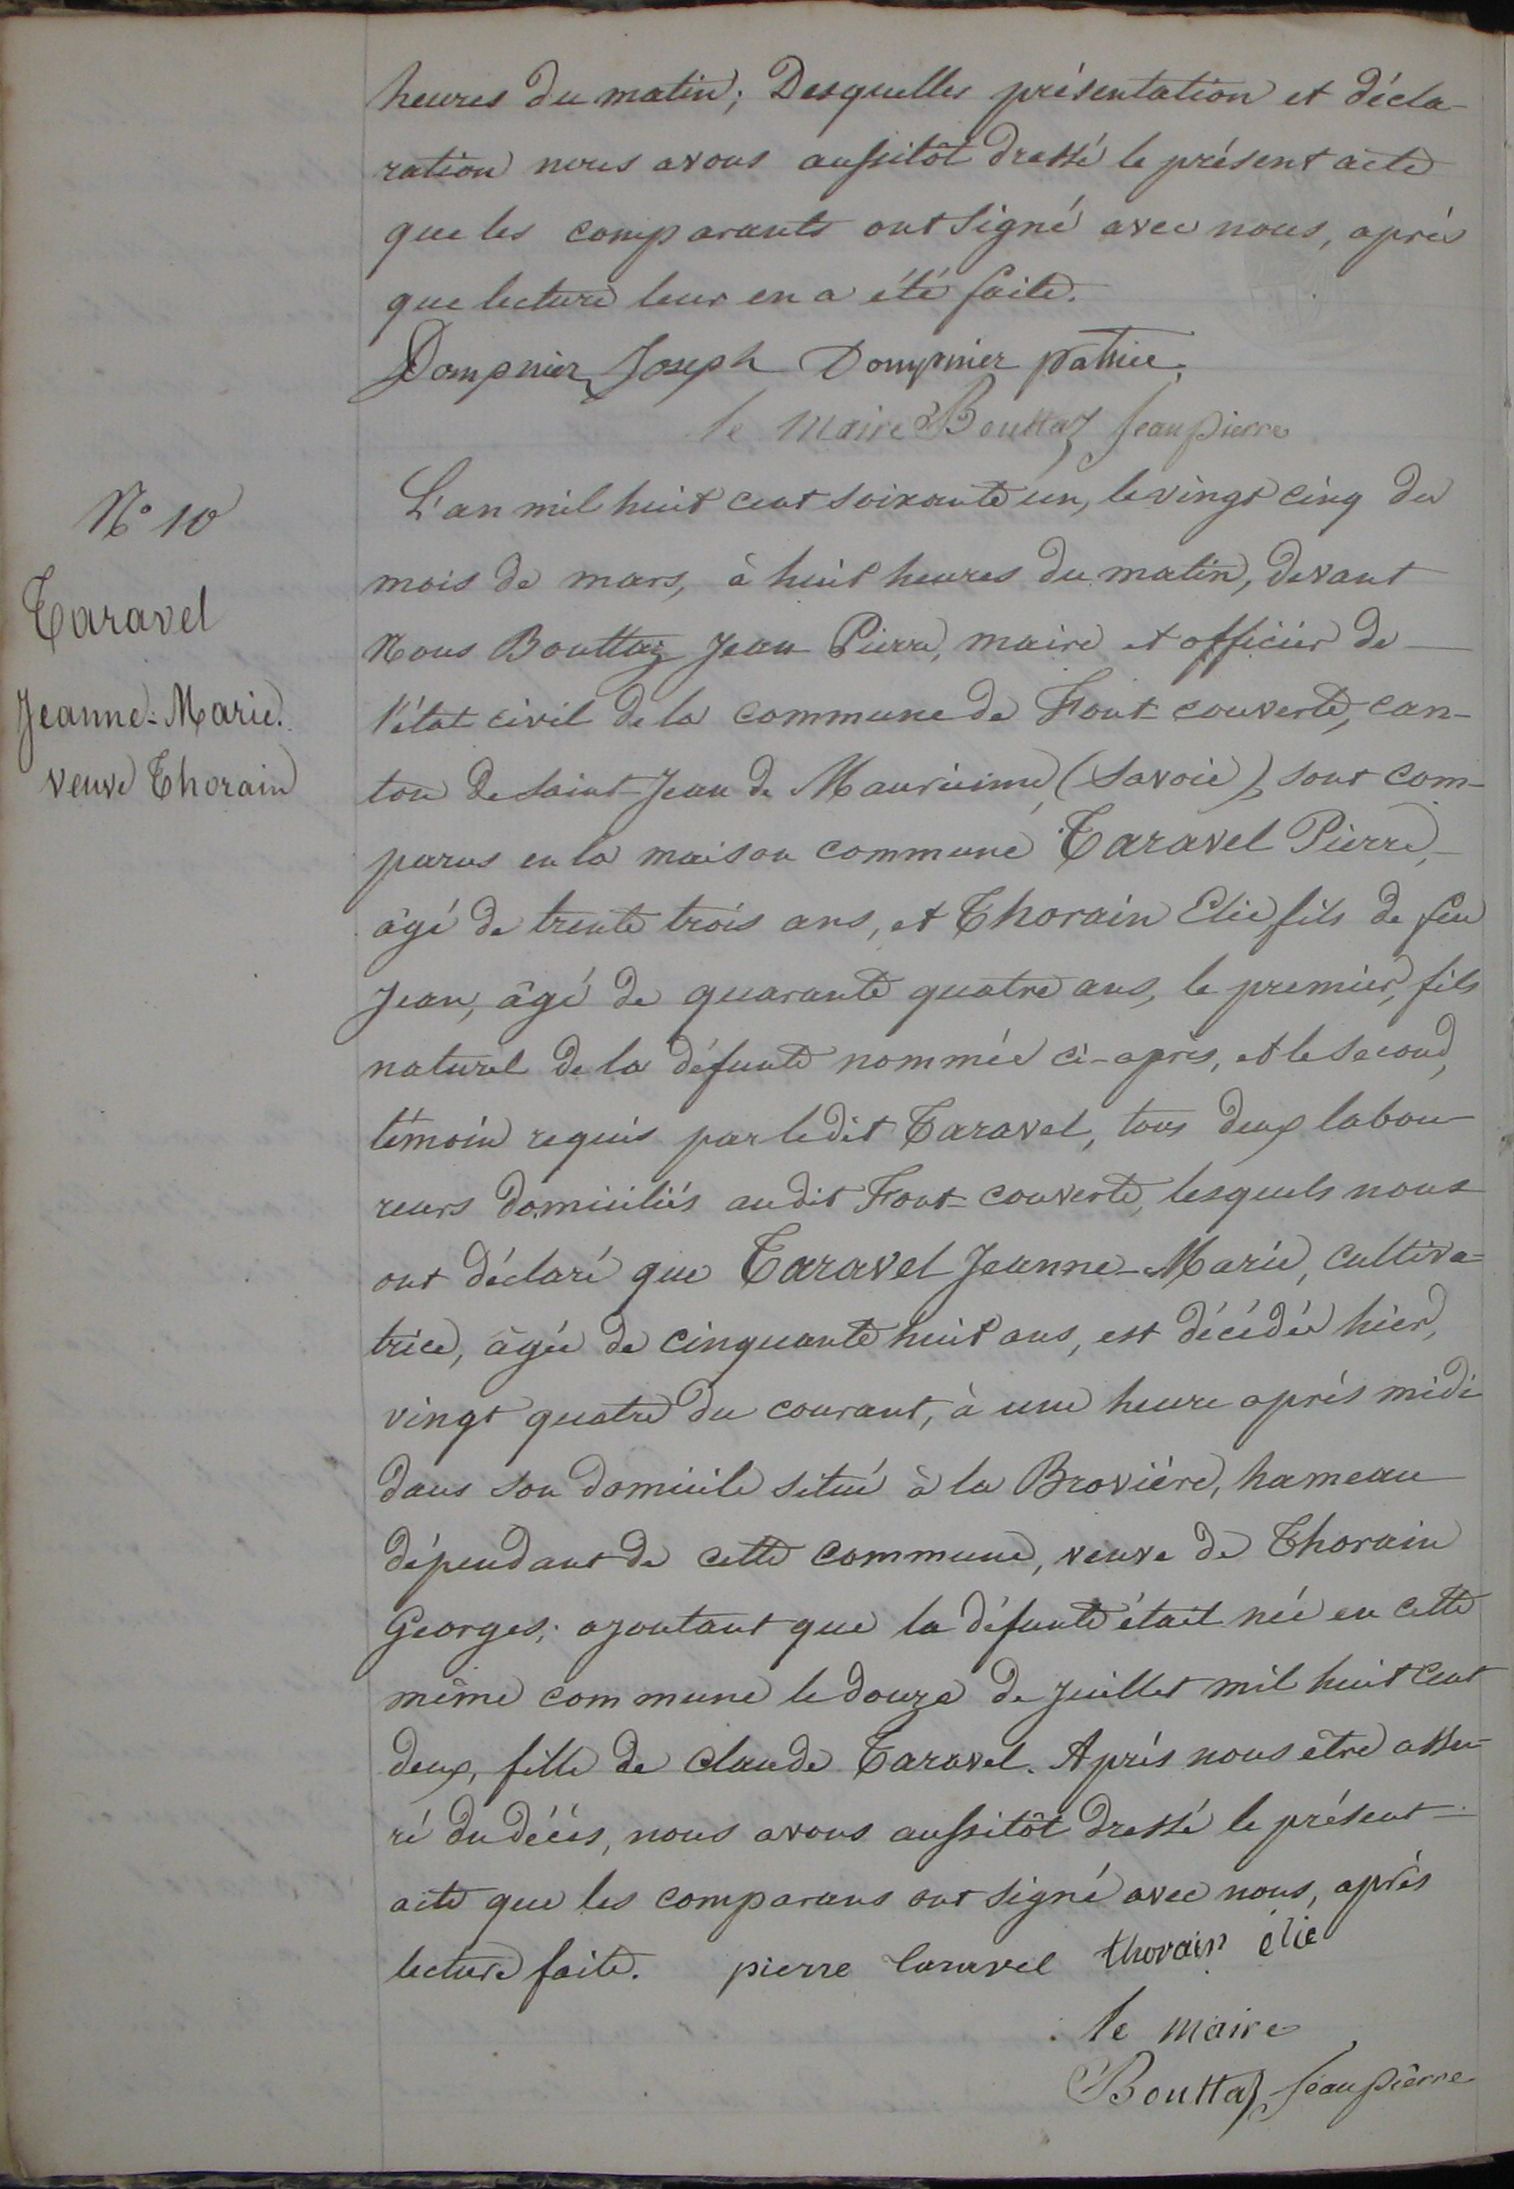 heures du matin; Desquelles présentation et décla-
ration nous avons aussitôt dressé le présent acte
que les comparants ont signé avec nous, après
que lecture leur en a été faite.
Dompnier Joseph Dompnier patrice.
le maire Bouttaz jean pierre
N° 10
Taravel
Jeanne-Marie.
veuve Thorain
L'an mil huit cent soixante un, le vingt cinq du
mois de mars, à huit heures du matin, devant
Nous Bouttaz Jean Pierre, maire et officier de
l'état civil de la commune de Font-couverte, can-
ton de Saint-Jean de Maurienne, (Savoie), sont com-
parus en la maison commune Taravel Pierre,
âgé de trente trois ans, et Thorain Elie fils de feu
Jean, âgé de quarante quatre ans, le premier, fils
naturel de la défunte nommée ci-après, et le second,
témoin requis par ledit Taravel, tous deux labou-
reurs domiciliés audit Font-couverte, lesquels nous
ont déclaré que Taravel Jeanne-Marie, cultiva-
trice, âgée de cinquante huit ans, est décédée hier,
vingt quatre du courant, à une heure après midi
dans son domicile situé à la Brovière, hameau
dépendant de cette commune, veuve de Thorain
Georges; ajoutant que la défunte était née en cette
même commune le douze de juillet mil huit cent
deux, fille de Claude Taravel. Après nous être assu-
ré du décès, nous avons aussitôt dressé le présent
acte que les comparans ont signé avec nous, après
lecture faite. pierre taravel thorain élie
le maire
Bouttaz jean pierre